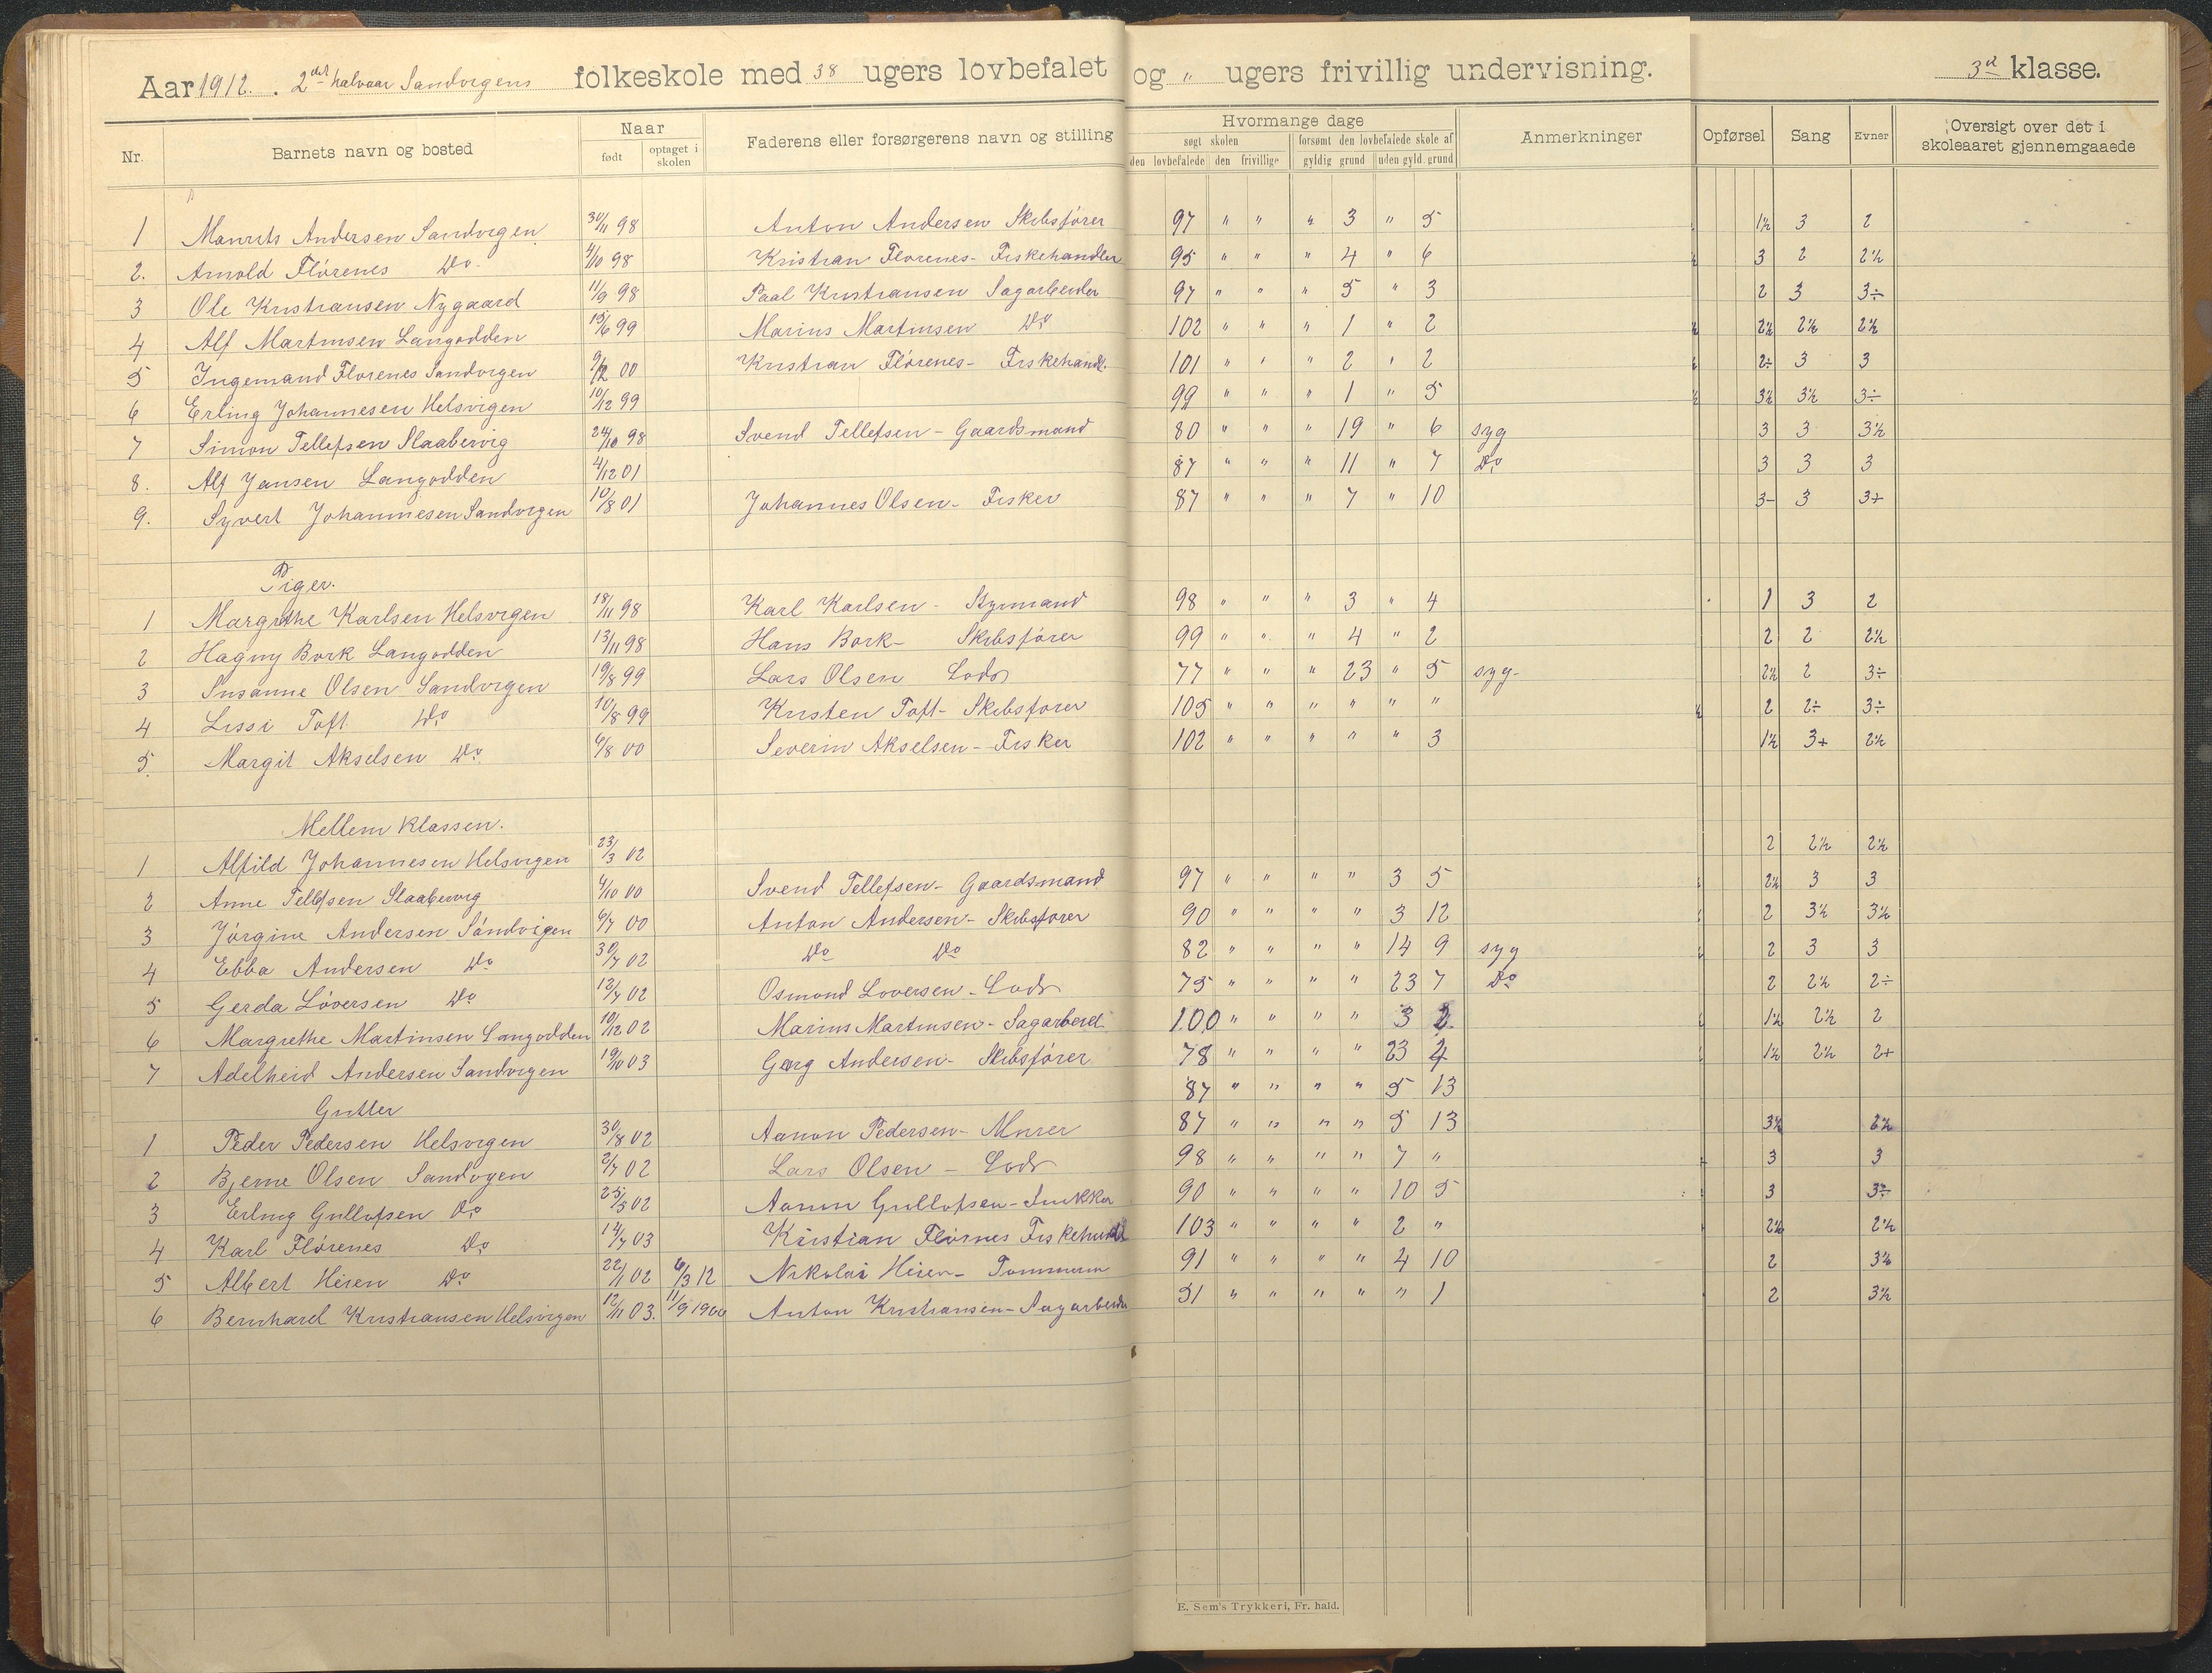 Aar 1912. 2det halvaar Sandvigens folkeskole med 38 ugers lovbefalet og " ugers frivillig undervisning. 3d klasse.
Nr. Barnets navn og bosted Naar født optaget i skolen Faderens eller forsørgerens navn og stilling Hvormange dage søgt skolen den lovbefalede den frivillige forsømt den lovbefalede skole af gyldig grund uden gyld. grund Anmerkninger Opførsel Sang Evner Oversigt over det i skoleaaret gjennemgaaede
1 Maurits Andersen Sandvigen 30/11 98 Anton Andersen Skibsfører 97 " " " 3 " 5 1½ 3 2
2. Arnold Flörenes Do. 4/10 98 Kristian Florenes - Fiskehandler 95 " " " 4 " 6 3 2 2½
3 Ole Kristiansen Nygaard 11/9 98 Paal Kristiansen Sagarbeider 97 " " " 5 " 3 2 3 3÷
4 Alf Martinsen Langodden 15/6 99 Marius Martinsen Do 102 " " " 1 " 2 2½ 2½ 2½
5 Ingemand Florenes Sandvigen 9/12 00 Kristian Flörenes - Fiskehandl. 101 " " " 2 " 2 2÷ 3 3
6 Erling Johannesen Helsvigen 10/12 99 99 " " " 1 " 5 3½ 3½ 3÷
7 Simon Tellefsen Slaabervig 24/10 98 Svend Tellefsen - Gaardsmand 80 " " " 19 " 6 syg 3 3 3½
8. Alf Jansen Langodden 4/12 01 87 " " " 11 " 7 Do 3 3 3
9. Syvert Johannesen Sandvigen 10/8 01 Johannes Olsen - Fisker 87 " " " 7 " 10 3- 3 3+
Piger.
1 Margrethe Karlsen Helsvigen 18/11 98 Karl Karlsen - Styrmand 98 " " " 3 " 4 1 3 2
2 Hagny Bork Langodden 13/11 98 Hans Bork - Skibsfører 99 " " " 4 " 2 2 2 2½
3 Susanne Olsen Sandvigen 19/8 99 Lars Olsen Lods 77 " " " 23 " 5 syg- 2½ 2 3÷
4 Lissi Toft Do 10/8 99 Kristen Toft - Skibsfører 105 " " " " " " 2 2÷ 3÷
5. Margit Akselsen Do 6/8 00 Severin Akselsen - Fisker 102 " " " " " 3 1½ 3+ 2½
Mellem Klassen.
1 Alfild Johannesen Helsvigen 23/3 02 2 2½ 2½
2 Anne Tellefsen Slaabervig 4/10 00 Svend Tellefsen - Gaardsmand 97 " " " " 3 5 2½ 3 3
3 Jörgine Andersen Sandvigen 6/7 00 Anton Andersen - Skibsfører 90 " " " " 3 12 2 3½ 3½
4 Ebba Andersen Do 30/7 02 Do Do 82 " " " " 14 9 syg 2 3 3
5 Gerda Löversen Do 12/7 02 Osmond Loversen - Lods 75 " " " " 23 7 Do 2 2½ 2÷
6 Margrethe Martinsen Langodden 10/12 02 Marius Martinsen - Sagarbeid. 100 " " " " 3 2 1½ 2½ 2
7 Adelheid Andersen Sandvigen 19/10 03 Georg Andersen - Skibsfører 78 " " " " 23 4 1½ 2½ 2+
87 " " " " 5 13
Gutter
1 Peder Pedersen Helsvigen 30/8 02 Aanon Pedersen - Murer 87 " " " " 5 13 3½ 2½
2 Bjerne Olsen Sandvigen 2/7 02 Lars Olsen - Lods 98 " " " " 7 " 3 3
3 Erling Gullofsen Do 25/5 02 Aanon Gullofsen - Snekker 90 " " " " 10 5 3 3÷
4 Karl Flörenes Do 14/7 03 Kristian Flörnes Fiskehandl 103 " " " " 2 " 2½ 2½
5 Albert Heien Do 22/1 02 6/3 12 Nikolai Heien - Tømmerm 91 " " " " 4 10 2 3½
6 Bernhard Kristiansen Helsvigen 12/11 03. 11/9 Anton Kristiansen - Sagarbeider 31 " " " " " 1 2 3½
E. Sem's Trykkeri, Fr. hald.